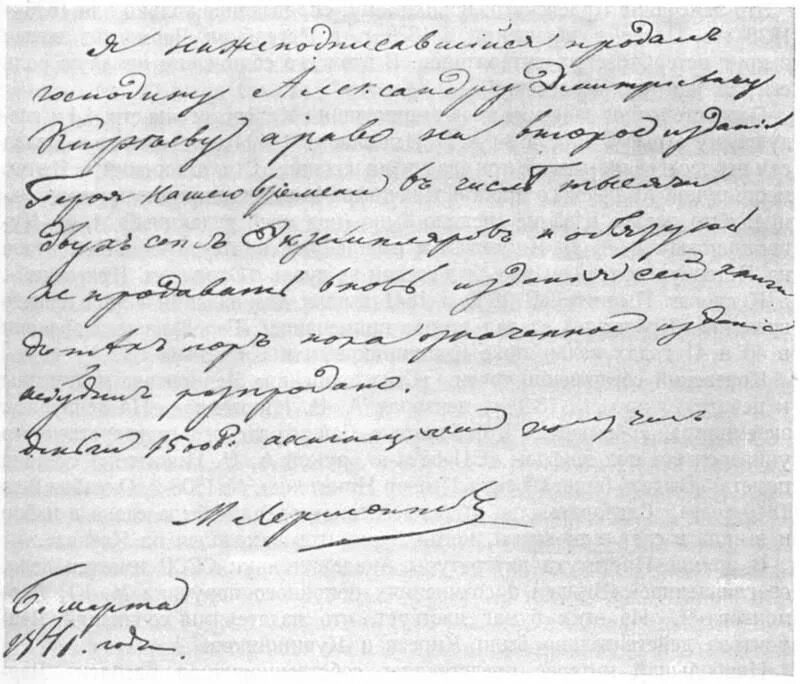 Я нижеподписавшійся продалъ
господину Александру Дмитріевичу
Кирѣеву право на второе изданіе
Героя Нашего Времени въ числѣ тысячи
двухъ сотъ Экземпляровъ и обязуюсь
не продавать вновь изданія сей книги
до тѣхъ поръ пока означенное изданіе
небудетъ распродано
деньги 1500 Р. ассигнаціями получилъ
М Лермонтовъ
6. марта
1841. года.